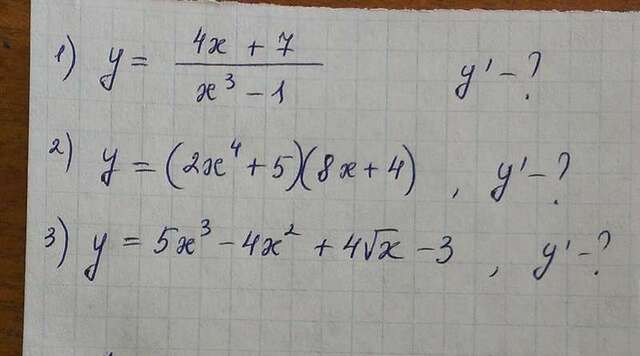 1) y = (4x + 7)/(x³ − 1) y' − ?
2) y = (2x⁴ + 5)(8x + 4) , y' − ?
3) y = 5x³ − 4x² + 4√x − 3 , y' − ?